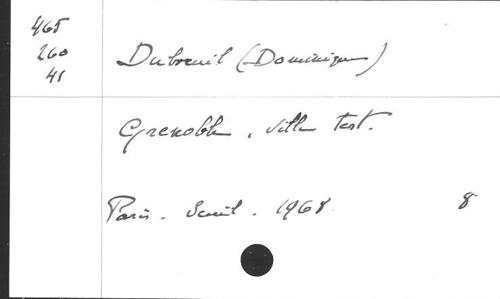 465
260
41
Dubreuil (Dominique)
Grenoble, ville test.
Paris. Seuil. 1968. 8